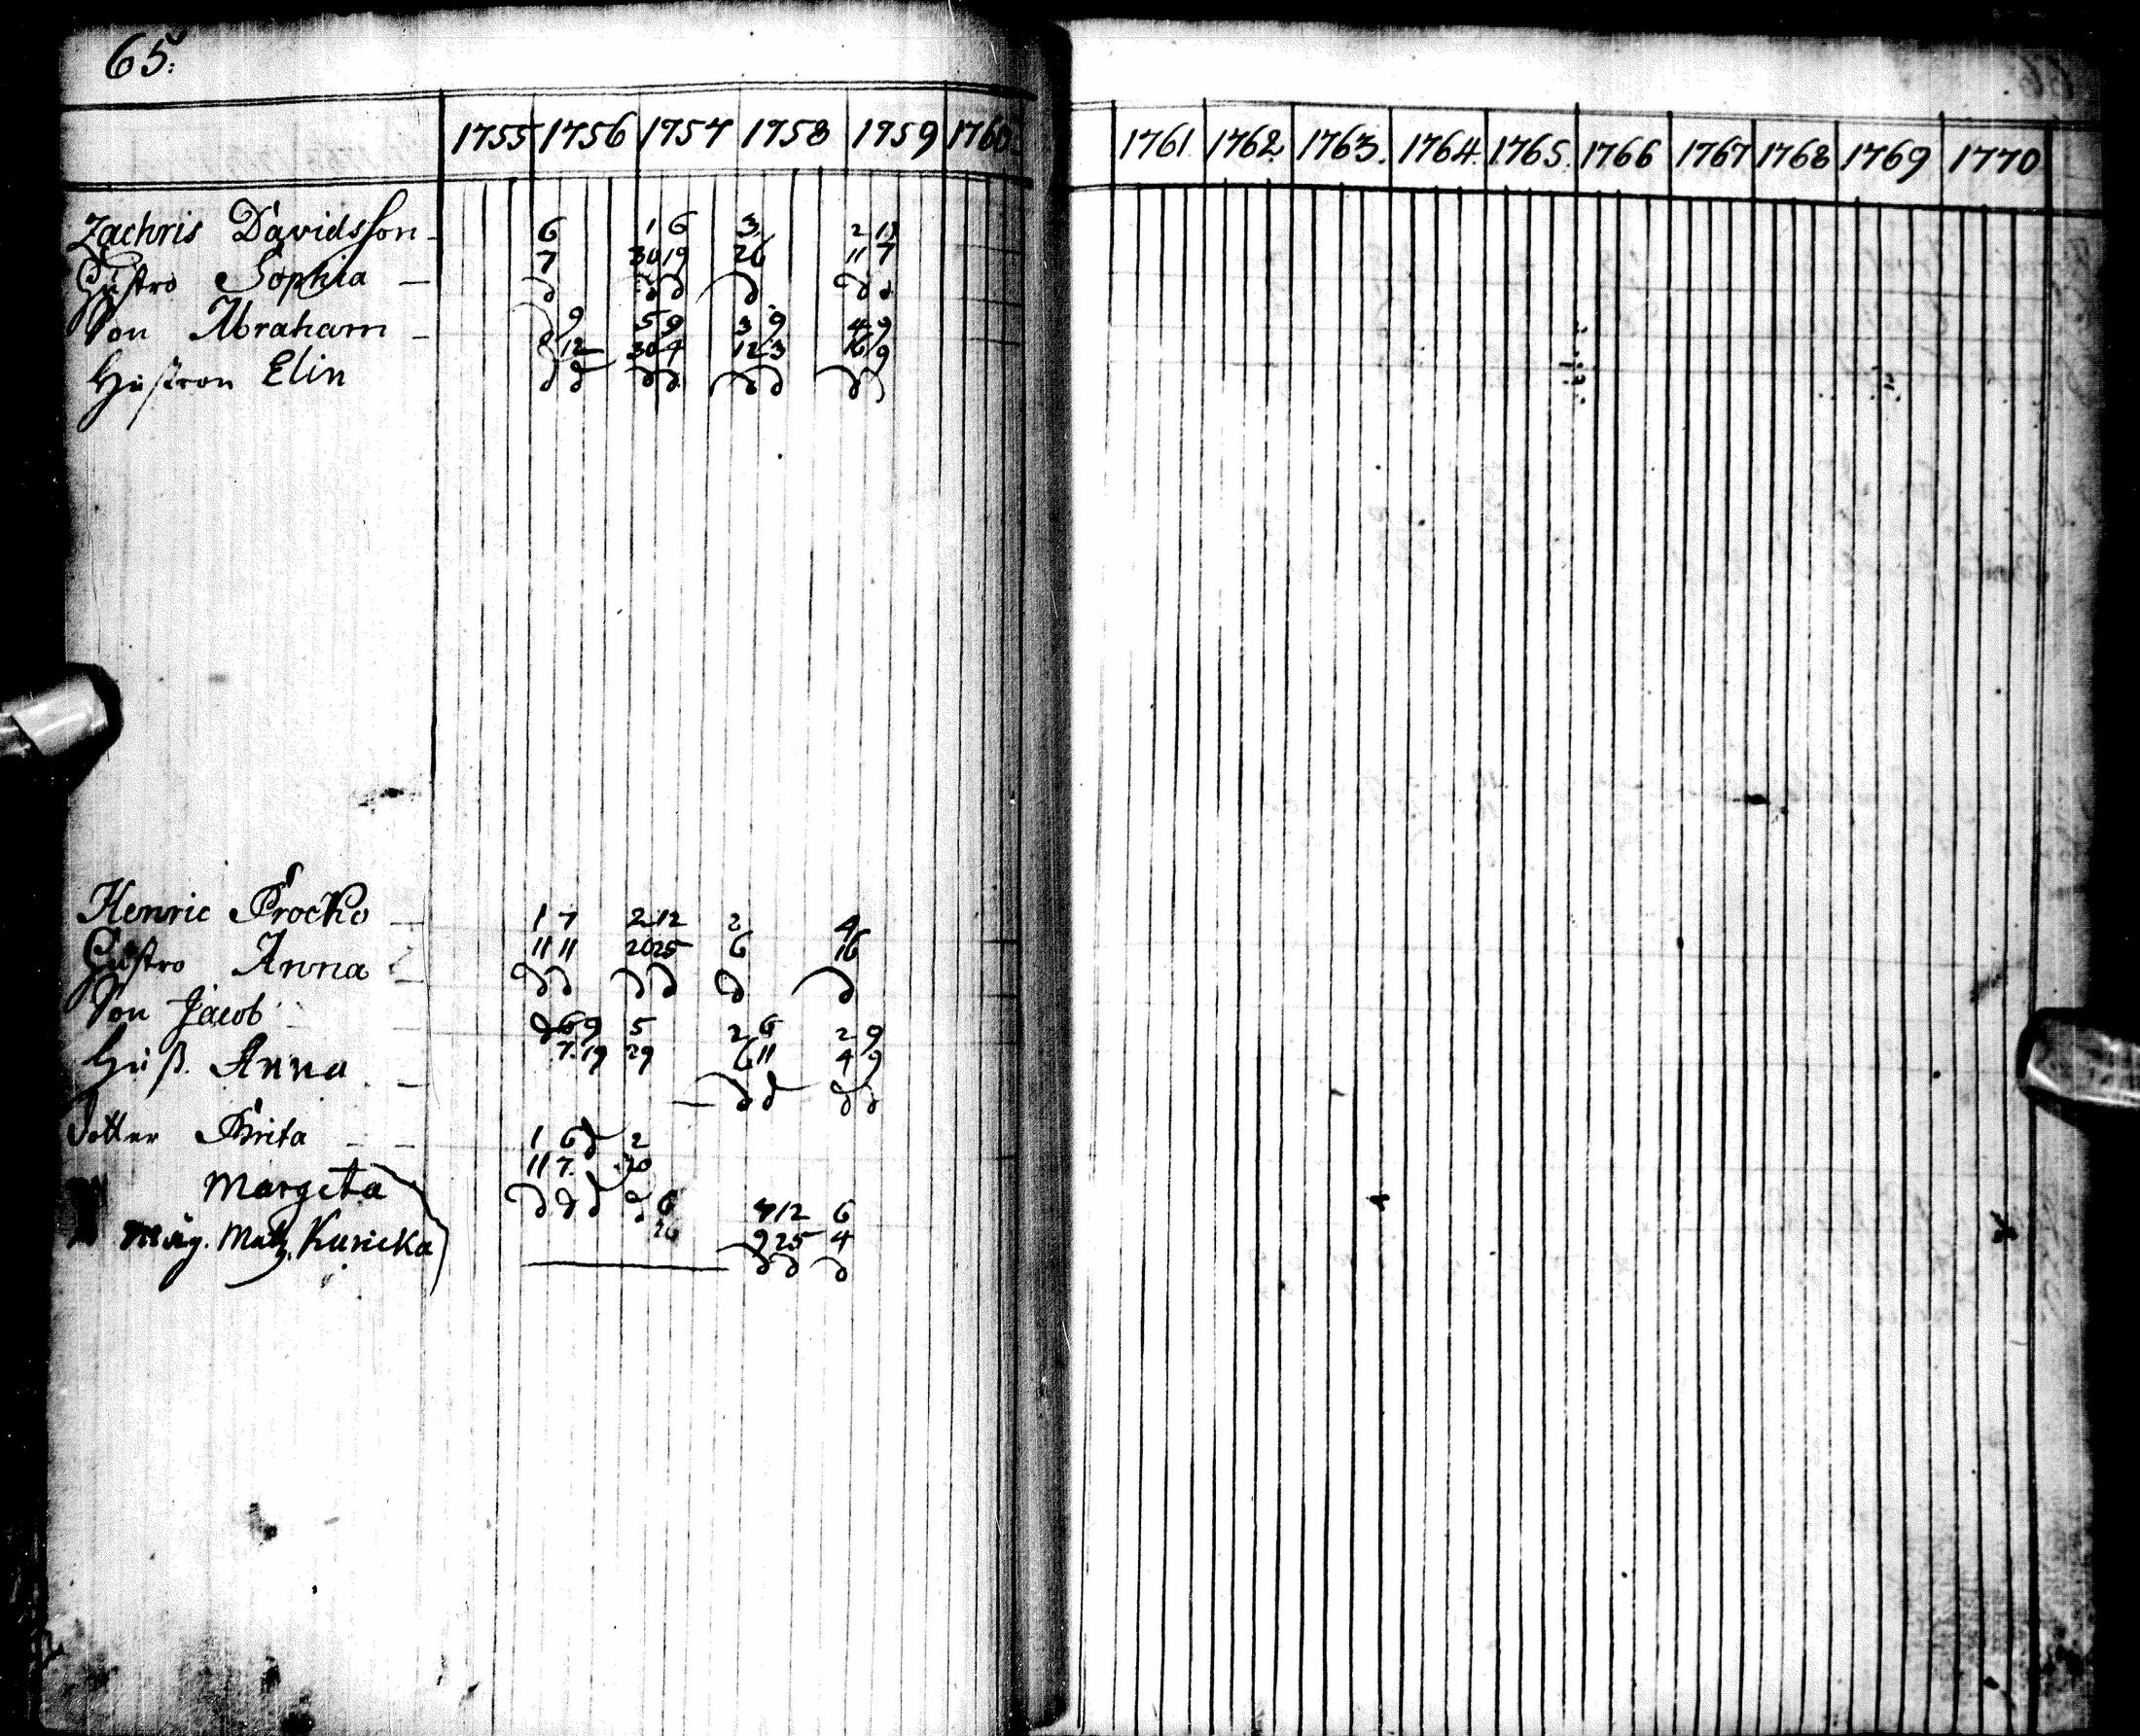 65.
1755 1756 1757 1758 1759 1760
1761 1762 1763. 1764. 1765. 1766 1767 1768 1769 1770
Zachris Davidsson
6 1 6 3
7 30 19 26 11 7
Hustro Sophia
Son Abraham
9 5 9 3 9 4 9
12 30 4 12 3 16 9
Hustron Elin
Henric Procko
1 7 2 12 2 4
11 11 20 25 6 16
Hustro Anna
Son Jacob
6 9 5 2 6 2 9
7 19 29 6 11 4 9
Hust. Anna
Dotter Brita
1 6 2
11 7 20
Margeta
6 12 6
26 9 25 4
Måg. Matz. Kuricka